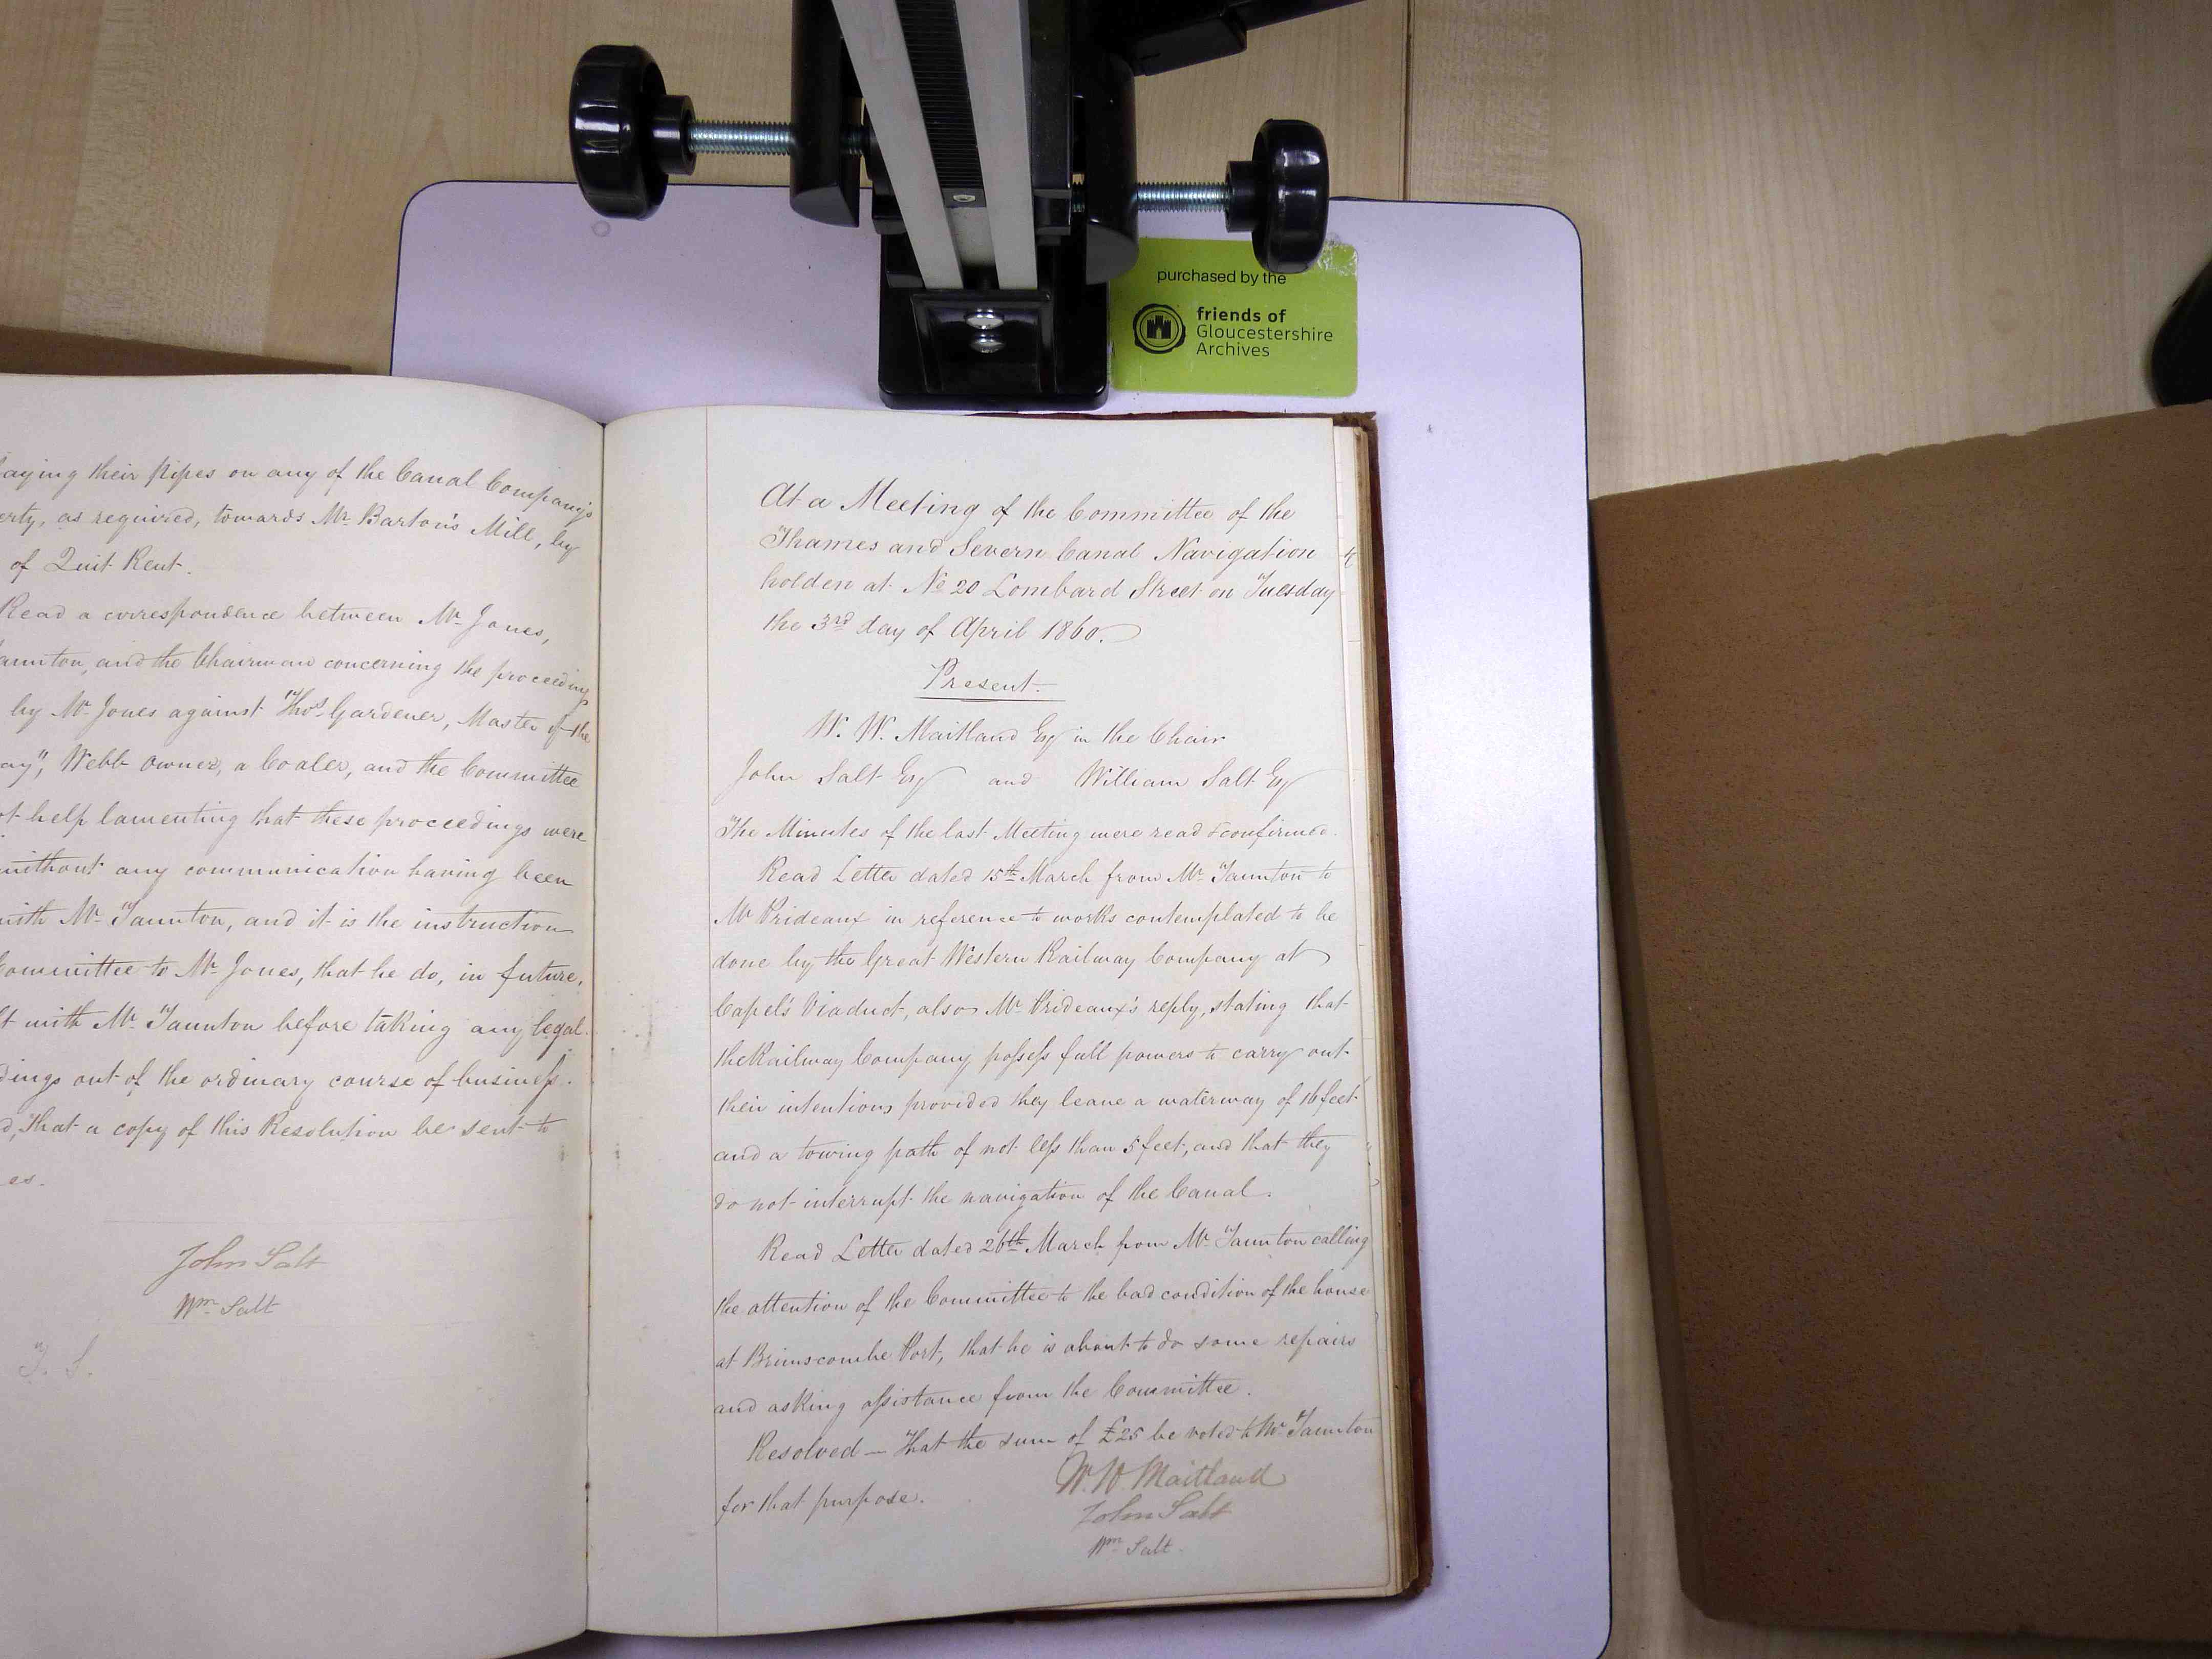 purchased by the
friends of
Gloucestershire
Archives
aying their Pipes on any of the Canal Company's
erty, as required, towards Mr Barton's Mill, by
of Quit Rent.
Read a correspondence between Mr Jones,
aunton, and the Chairman concerning the proceedings
by Mr Jones against Thos. Gardener, Master of the
ay", Webb owner, a Coaler, and the Committee
t help lamenting that these proceedings were
without any communication having been
with Mr Taunton, and it is the instruction
Committee to Mr Jones, that he do, in future,
lt with Mr Taunton before taking any legal
dings out of the ordinary course of business.
d, That a copy of this Resolution be sent to
es.
John Salt
Wm Salt
T. S.
At a Meeting of the Committee of the
Thames and Severn Canal Navigation
holden at No 20 Lombard Street on Tuesday
the 3rd day of April 1860.
Present.
W. W. Maitland Esq in the Chair
John Salt Esq and William Salt Esq
The Minutes of the last Meeting were read & confirmed.
Read Letter dated 15th March from Mr Taunton to
Mr Prideaux in reference to works contemplated to be
done by the Great Western Railway Company at
Capel's Viaduct, also Mr Prideaux's reply, stating that
the Railway Company possess full powers to carry out
their intentions provided they leave a waterway of 16 feet
and a towing path of not less than 5 feet, and that they
do not interrupt the navigation of the Canal.
Read Letter dated 26th March from Mr Taunton calling
the attention of the Committee to the bad condition of the house
at Brimscombe Port, that he is about to do some repairs
and asking assistance from the Committee.
Resolved — That the sum of £25 be voted to Mr Taunton
for that purpose.
W. W. Maitland
John Salt
Wm Salt.